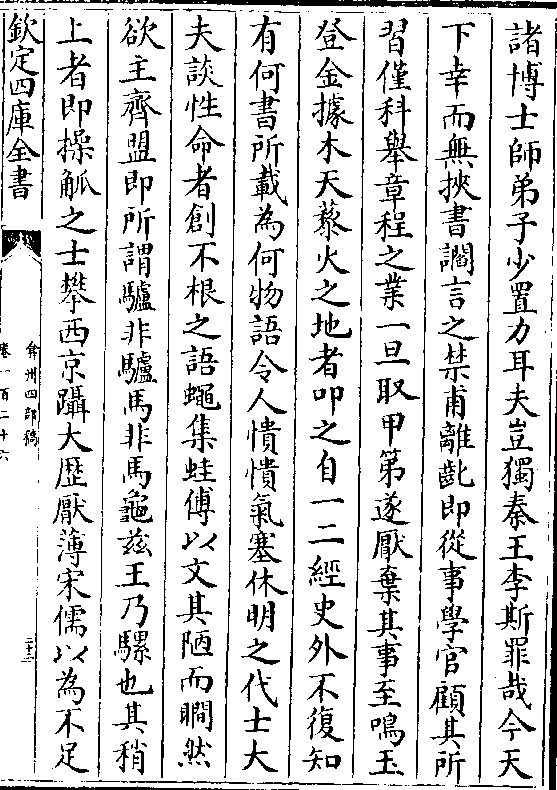 諸博士師弟子少置力耳夫豈獨秦王李斯罪哉今天
下幸而無挾書讕言之禁甫離齔即從事學官顧其所
習僅科舉章程之業一旦取甲第遂厭棄其事至鳴玉
登金據木天藜火之地者叩之自一二經史外不復知
有何書所載為何物語令人憒憒氣塞休明之代士大
夫談性命者創不根之語蠅集蛙傳以文其陋而瞯然
欲主齊盟即所謂驢非驢馬非馬龜玆王乃騾也其稍
上者即操觚之士攀西京躡大歴厭薄宋儒以為不足
欽定四庫全書
弇州四部稿
卷一百二十六
二十三